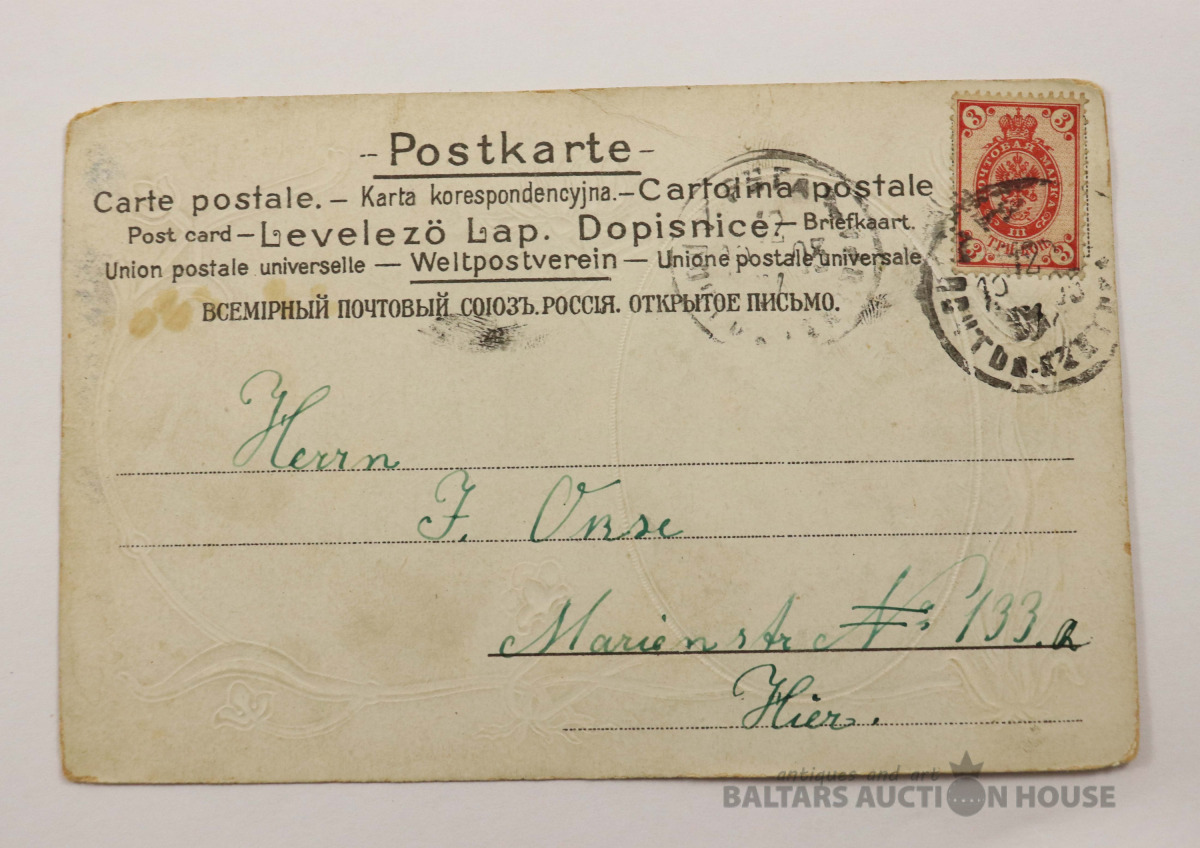 - Postkarte -
Carte postale. - Karta korespondencyjna. - Cartolina postale
Post card - Levelezö Lap. Dopisnice. - Briefkaart.
Union postale universelle — Weltpostverein — Unione postale universale
ВСЕМІРНЫЙ ПОЧТОВЫЙ СОЮЗЪ. РОССІЯ. ОТКРЫТОЕ ПИСЬМО.
3 3
ПОЧТОВАЯ МАРКА
III
ТРИ КОП.
3 3
Herrn
J. Okse
Marienstr № 133.a
Hier.
antiques and art
BALTARS AUCTION HOUSE